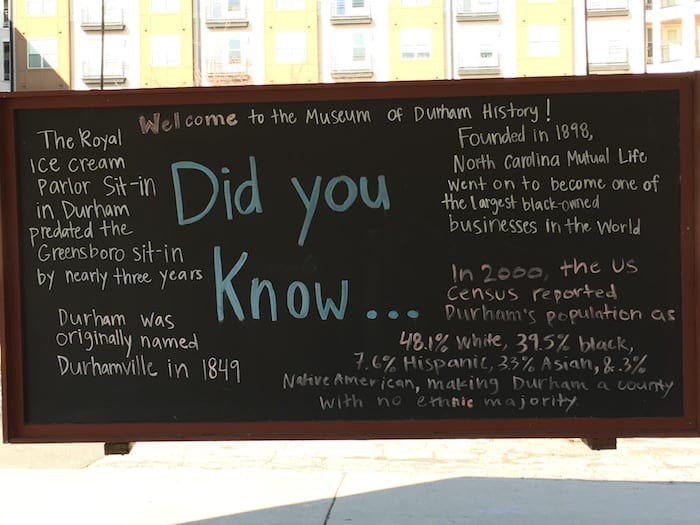 Welcome to the Museum of Durham History!
The Royal
ice cream
Parlor Sit-in
in Durham
predated the
Greensboro sit-in
by nearly three years
Durham was
originally named
Durhamville in 1849
Did you
Know...
Founded in 1898,
North Carolina Mutual Life
went on to become one of
the largest black-owned
businesses in the World
In 2000, the US
Census reported
Durham's population as
48.1% white, 39.5% black,
7.6% Hispanic, 3.3% Asian, &.3%
Native American, making Durham a county
with no ethnic majority